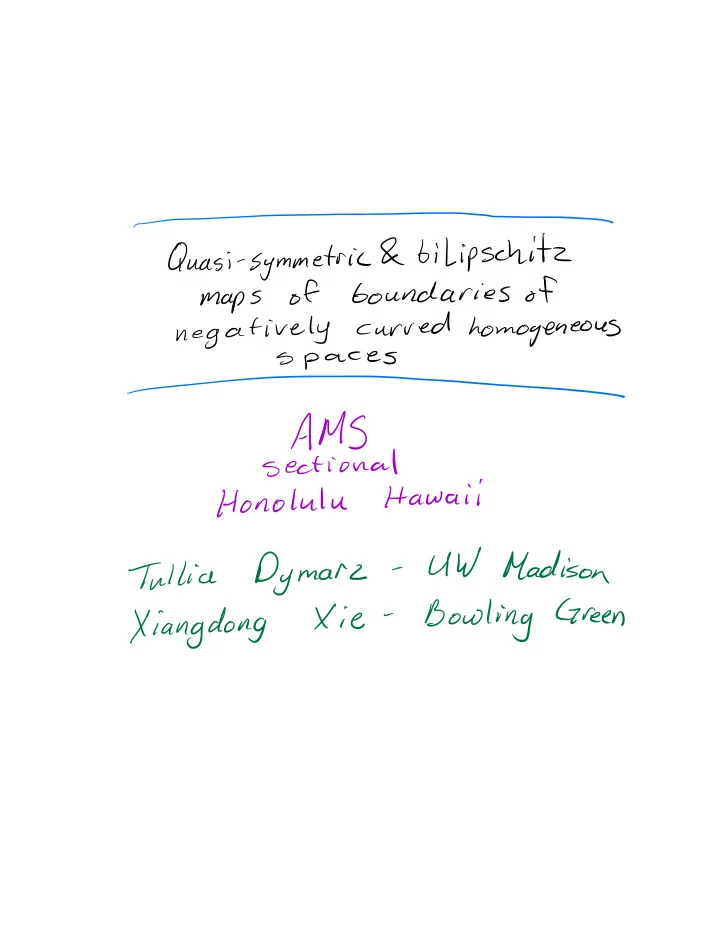 Quasi-symmetric & biLipschitz
maps of boundaries of
negatively curved homogeneous
spaces
AMS
sectional
Honolulu Hawaii
Tullia Dymarz - UW Madison
Xiangdong Xie - Bowling Green